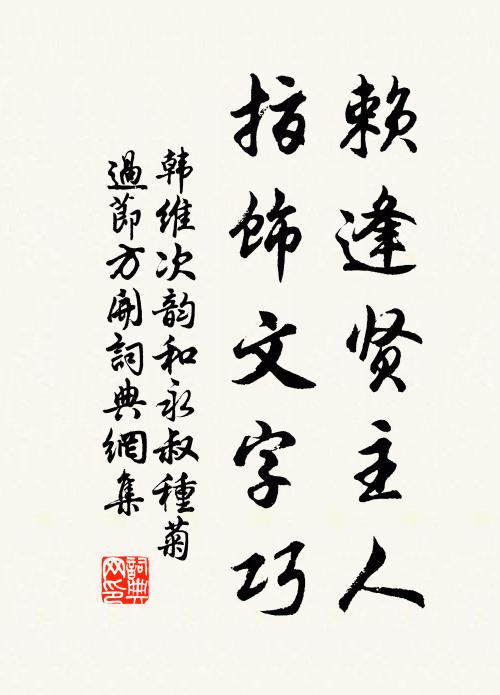 赖逢贤主人
指饰文字巧
韩维次韵和永叔種菊
過節方開詞典網集
詞典网印